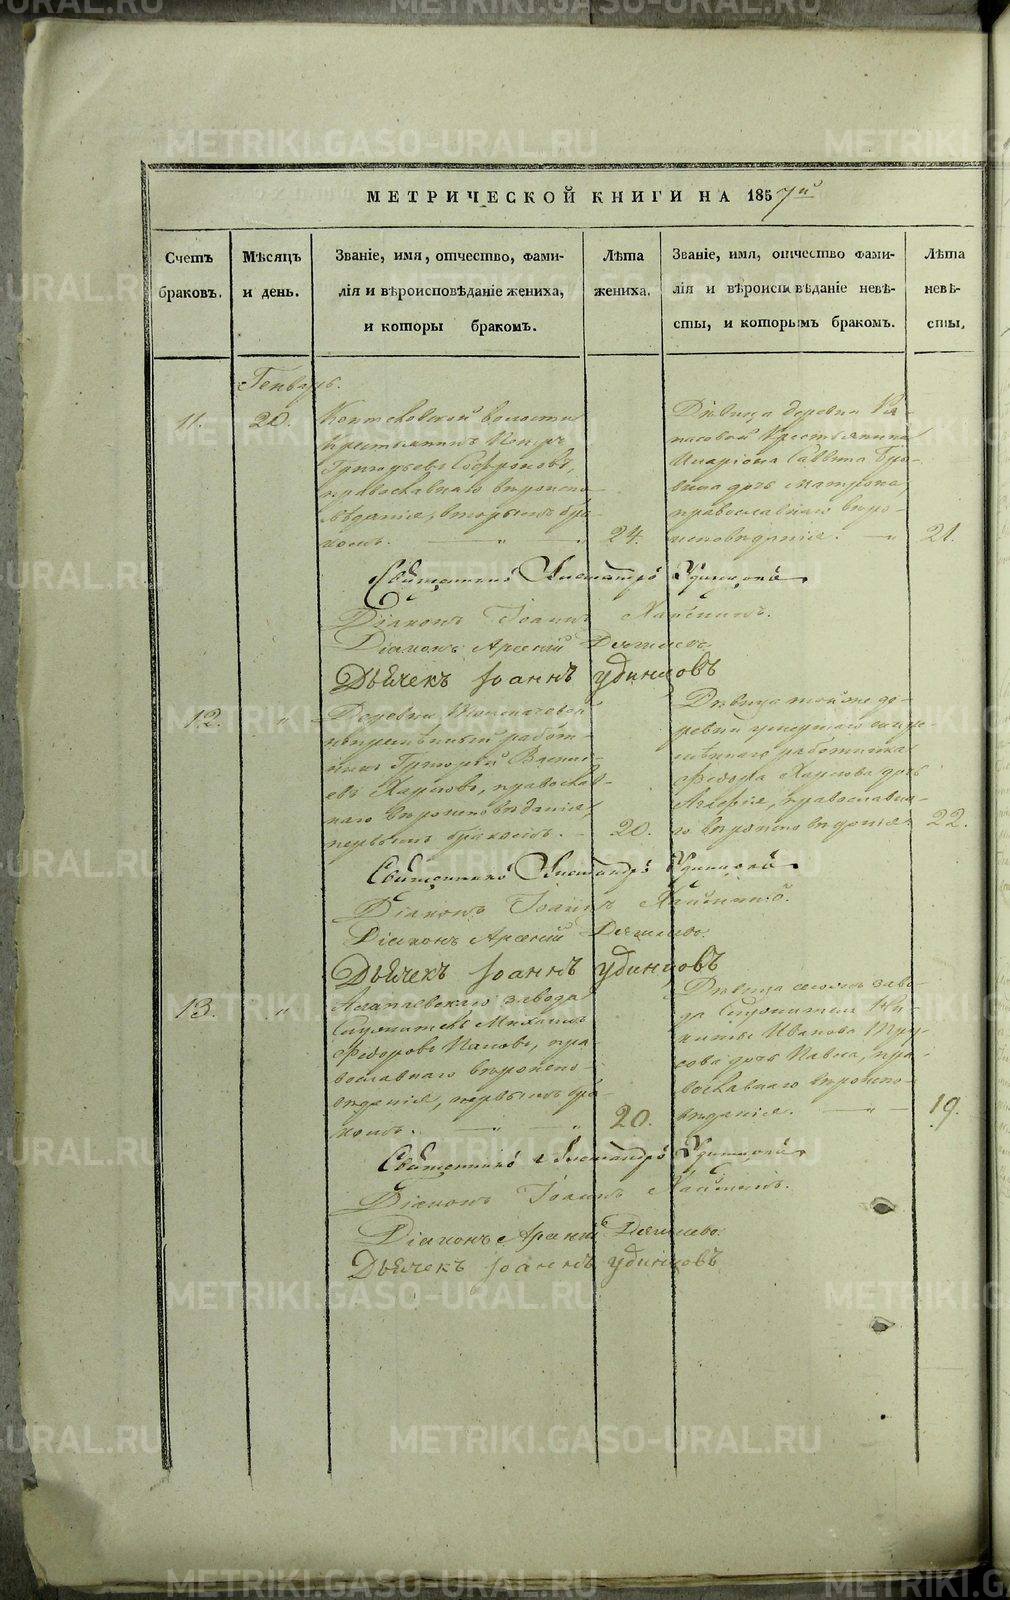 МЕТРИЧЕСКОЙ КНИГИ НА 1857й
Счетъ браковъ.
Мѣсяцъ и день.
Званіе, имя, отчество, фами-
лія и вѣроисповѣданіе жениха,
и которы бракомъ.
Лѣта жениха.
Званіе, имя, отчество фами-
лія и вѣроиспвѣданіе невѣ-
сты, и которымъ бракомъ.
Лѣта невѣ-
сты.
Генварь.
11.
20.
волости
Крестьянинъ Петръ
Григорьевъ Софроновъ,
православнаго вѣроиспо-
вѣданія, вторымъ бра-
комъ.
24.
Дѣвица деревни
Крестьянина
Иларіона Саввина
дочь Матрона,
православнаго вѣро-
исповѣданія.
21.
Священникъ Александръ Удинцовъ
Діаконъ Іоаннъ
Діаконъ Арсеній
Дьячекъ Іоаннъ Удинцовъ
12.
"
Деревни
непремѣнный работ-
никъ Григорій Василь-
евъ Харловъ, православ-
наго вѣроисповѣданія,
первымъ бракомъ.
20.
Дѣвица той же де-
ревни умершаго непре-
мѣннаго работника
Федора Харлова дочь
православна-
го вѣроисповѣданія.
22.
Священникъ Александръ Удинцовъ
Діаконъ Іоаннъ
Діаконъ Арсеній
Дьячекъ Іоаннъ Удинцовъ
13.
"
Алапаевскаго завода
Служитель Михаилъ
Федоровъ Поповъ, пра-
вославнаго вѣроиспо-
вѣданія, первымъ бра-
комъ.
20.
Дѣвица сегожъ заво-
да Служителя Ни-
киты Иванова Тру-
сова дочь Павла, пра-
вославнаго вѣроиспо-
вѣданія.
19.
Священникъ Александръ Удинцовъ
Діаконъ Іоаннъ
Діаконъ Арсеній
Дьячекъ Іоаннъ Удинцовъ
METRIKI.GASO-URAL.RU